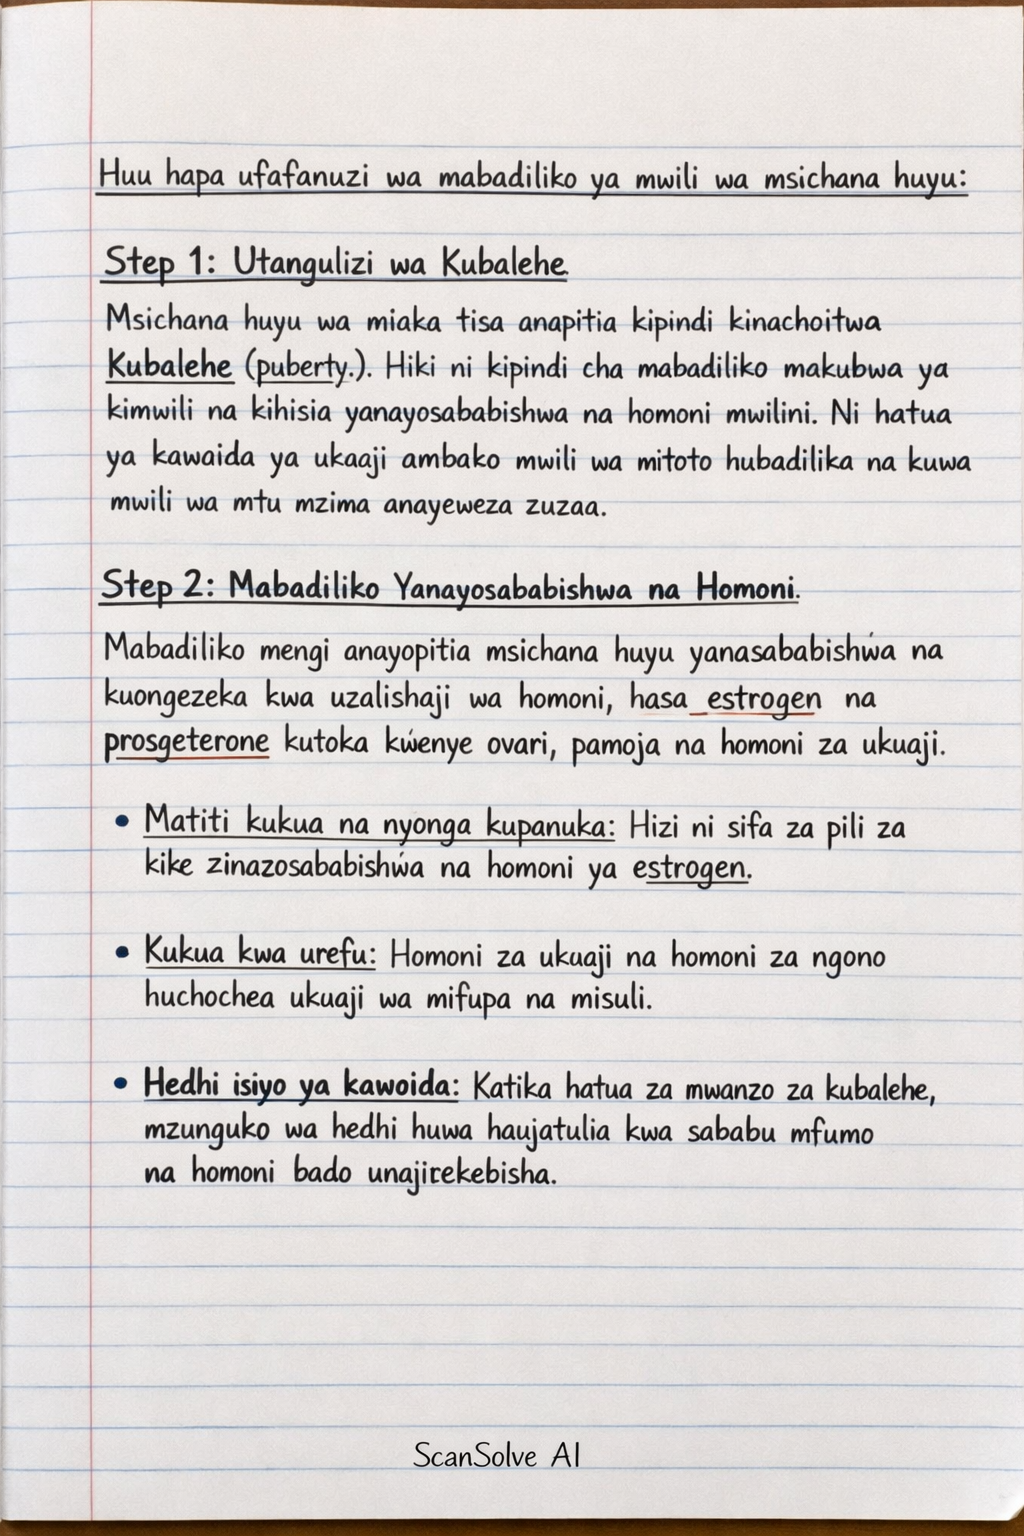 Huu hapa ufafanuzi wa mabadiliko ya mwili wa msichana huyu:
Step 1: Utangulizi wa Kubalehe
Msichana huyu wa miaka tisa anapitia kipindi kinachoitwa
Kubalehe (puberty.). Hiki ni kipindi cha mabadiliko makubwa ya
kimwili na kihisia yanayosababishwa na homoni mwilini. Ni hatua
ya kawaida ya ukaaji ambako mwili wa mitoto hubadilika na kuwa
mwili wa mtu mzima anayeweza zuzaa.
Step 2: Mabadiliko Yanayosababishwa na Homoni.
Mabadiliko mengi anayopitia msichana huyu yanasababishwa na
kuongezeka kwa uzalishaji wa homoni, hasa estrogen na
prosgeterone kutoka kwenye ovari, pamoja na homoni za ukuaji.
• Matiti kukua na nyonga kupanuka: Hizi ni sifa za pili za
kike zinazosababishwa na homoni ya estrogen.
• Kukua kwa urefu: Homoni za ukuaji na homoni za ngono
huchochea ukuaji wa mifupa na misuli.
• Hedhi isiyo ya kawoida: Katika hatua za mwanzo za kubalehe,
mzunguko wa hedhi huwa haujatulia kwa sababu mfumo
na homoni bado unajirekebisha.
ScanSolve AI